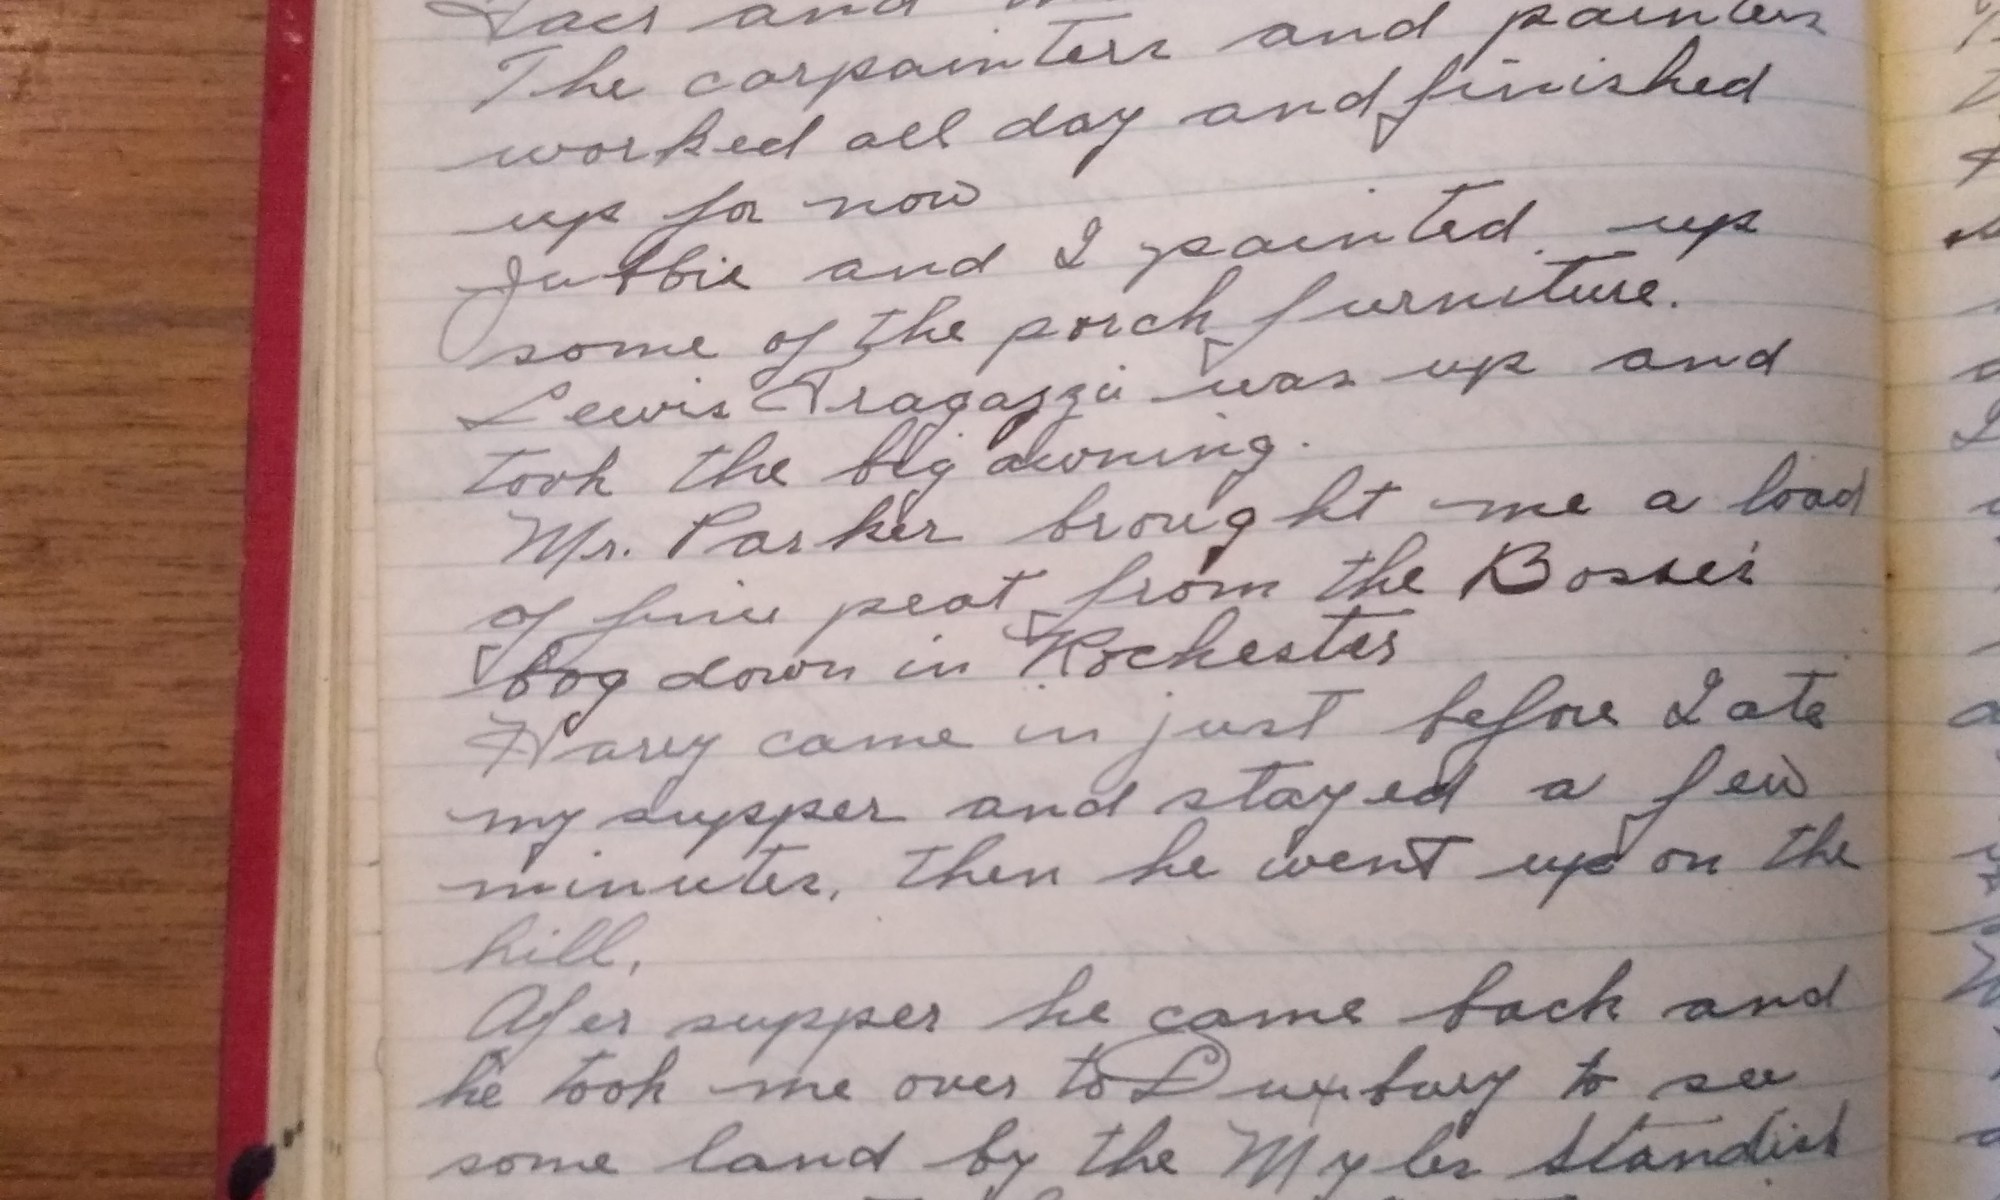 and
The carpainters and painters
worked all day and finished
up for now
and I painted up
some of the porch furniture.
Lewis Fragazzi was up and
took the big awning.
Mr. Parker brought me a load
of fine peat from the
bog down in Rochester
Harry came in just before I ate
my supper and stayed a few
minutes, then he went up on the
hill,
Afer supper he came back and
he took me over to Duxbury to see
some land by the Myles Standish